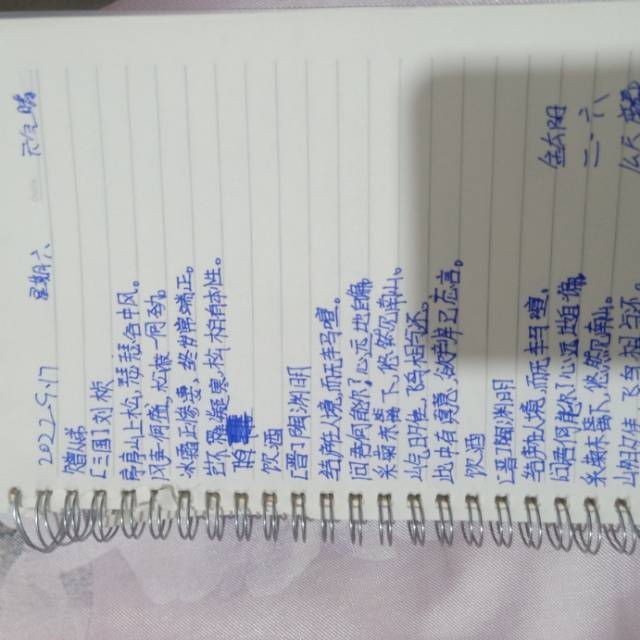 2022.9.17 星期六 天气晴
赠从弟
[三国]刘桢
亭亭山上松,瑟瑟谷中风。
风声一何盛,松枝一何劲。
冰霜正惨凄,终岁常端正。
岂不罹凝寒,松柏有本性。
饮酒
[晋]陶渊明
结庐在人境,而无车马喧。
问君何能尔!心远地自偏
采菊东篱下,悠然见南山。
山气日夕佳,飞鸟相与还。
此中有真意,欲辨已忘言。
饮酒
[晋]陶渊明
结庐在人境,而无车马喧,
问君何能尔!心远地自偏
采菊东篱下,悠然见南山。
山气日夕佳,飞鸟相与还。